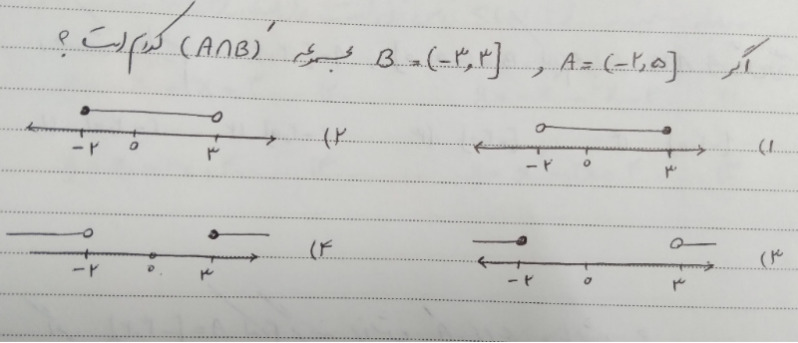 اگر A = (-۲, ۵] , B = (-۳, ۳] مجموعه (A∩B)' کدام است ؟
۱) -۲ ۰ ۳
۲) -۲ ۰ ۳
۳) -۲ ۰ ۳
۴) -۲ ۰ ۳